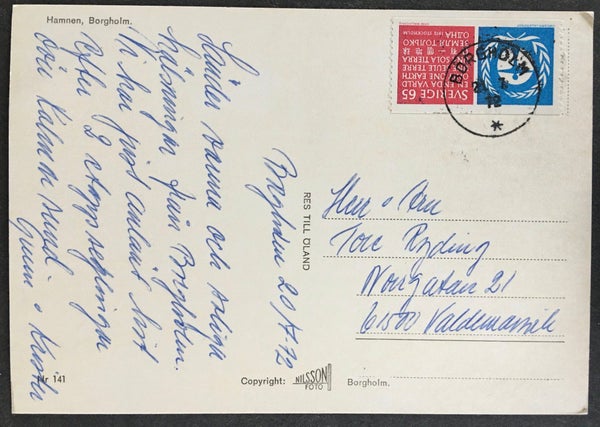 Hamnen, Borgholm.
Borgholm 20/7-72
Sänder varma och soliga
hälsningar från Borgholm.
Vi har just anlänt hit
efter 2 etapp seglingar
över Kalmar sund.
Gunn o
RES TILL ÖLAND
SVERIGE 65
EN ENDA VÄRLD
ONLY ONE EARTH
UNE SEULE TERRE
UNA SOLA TIERRA
ТОЛЬКО ОДНА
ЗЕМЛЯ
BORGHOLM
72
Herr o Fru
Tore Ryding
Norrgatan 21
61500 Valdemarsvik
Nr 141
Copyright: NILSSON FOTO Borgholm.